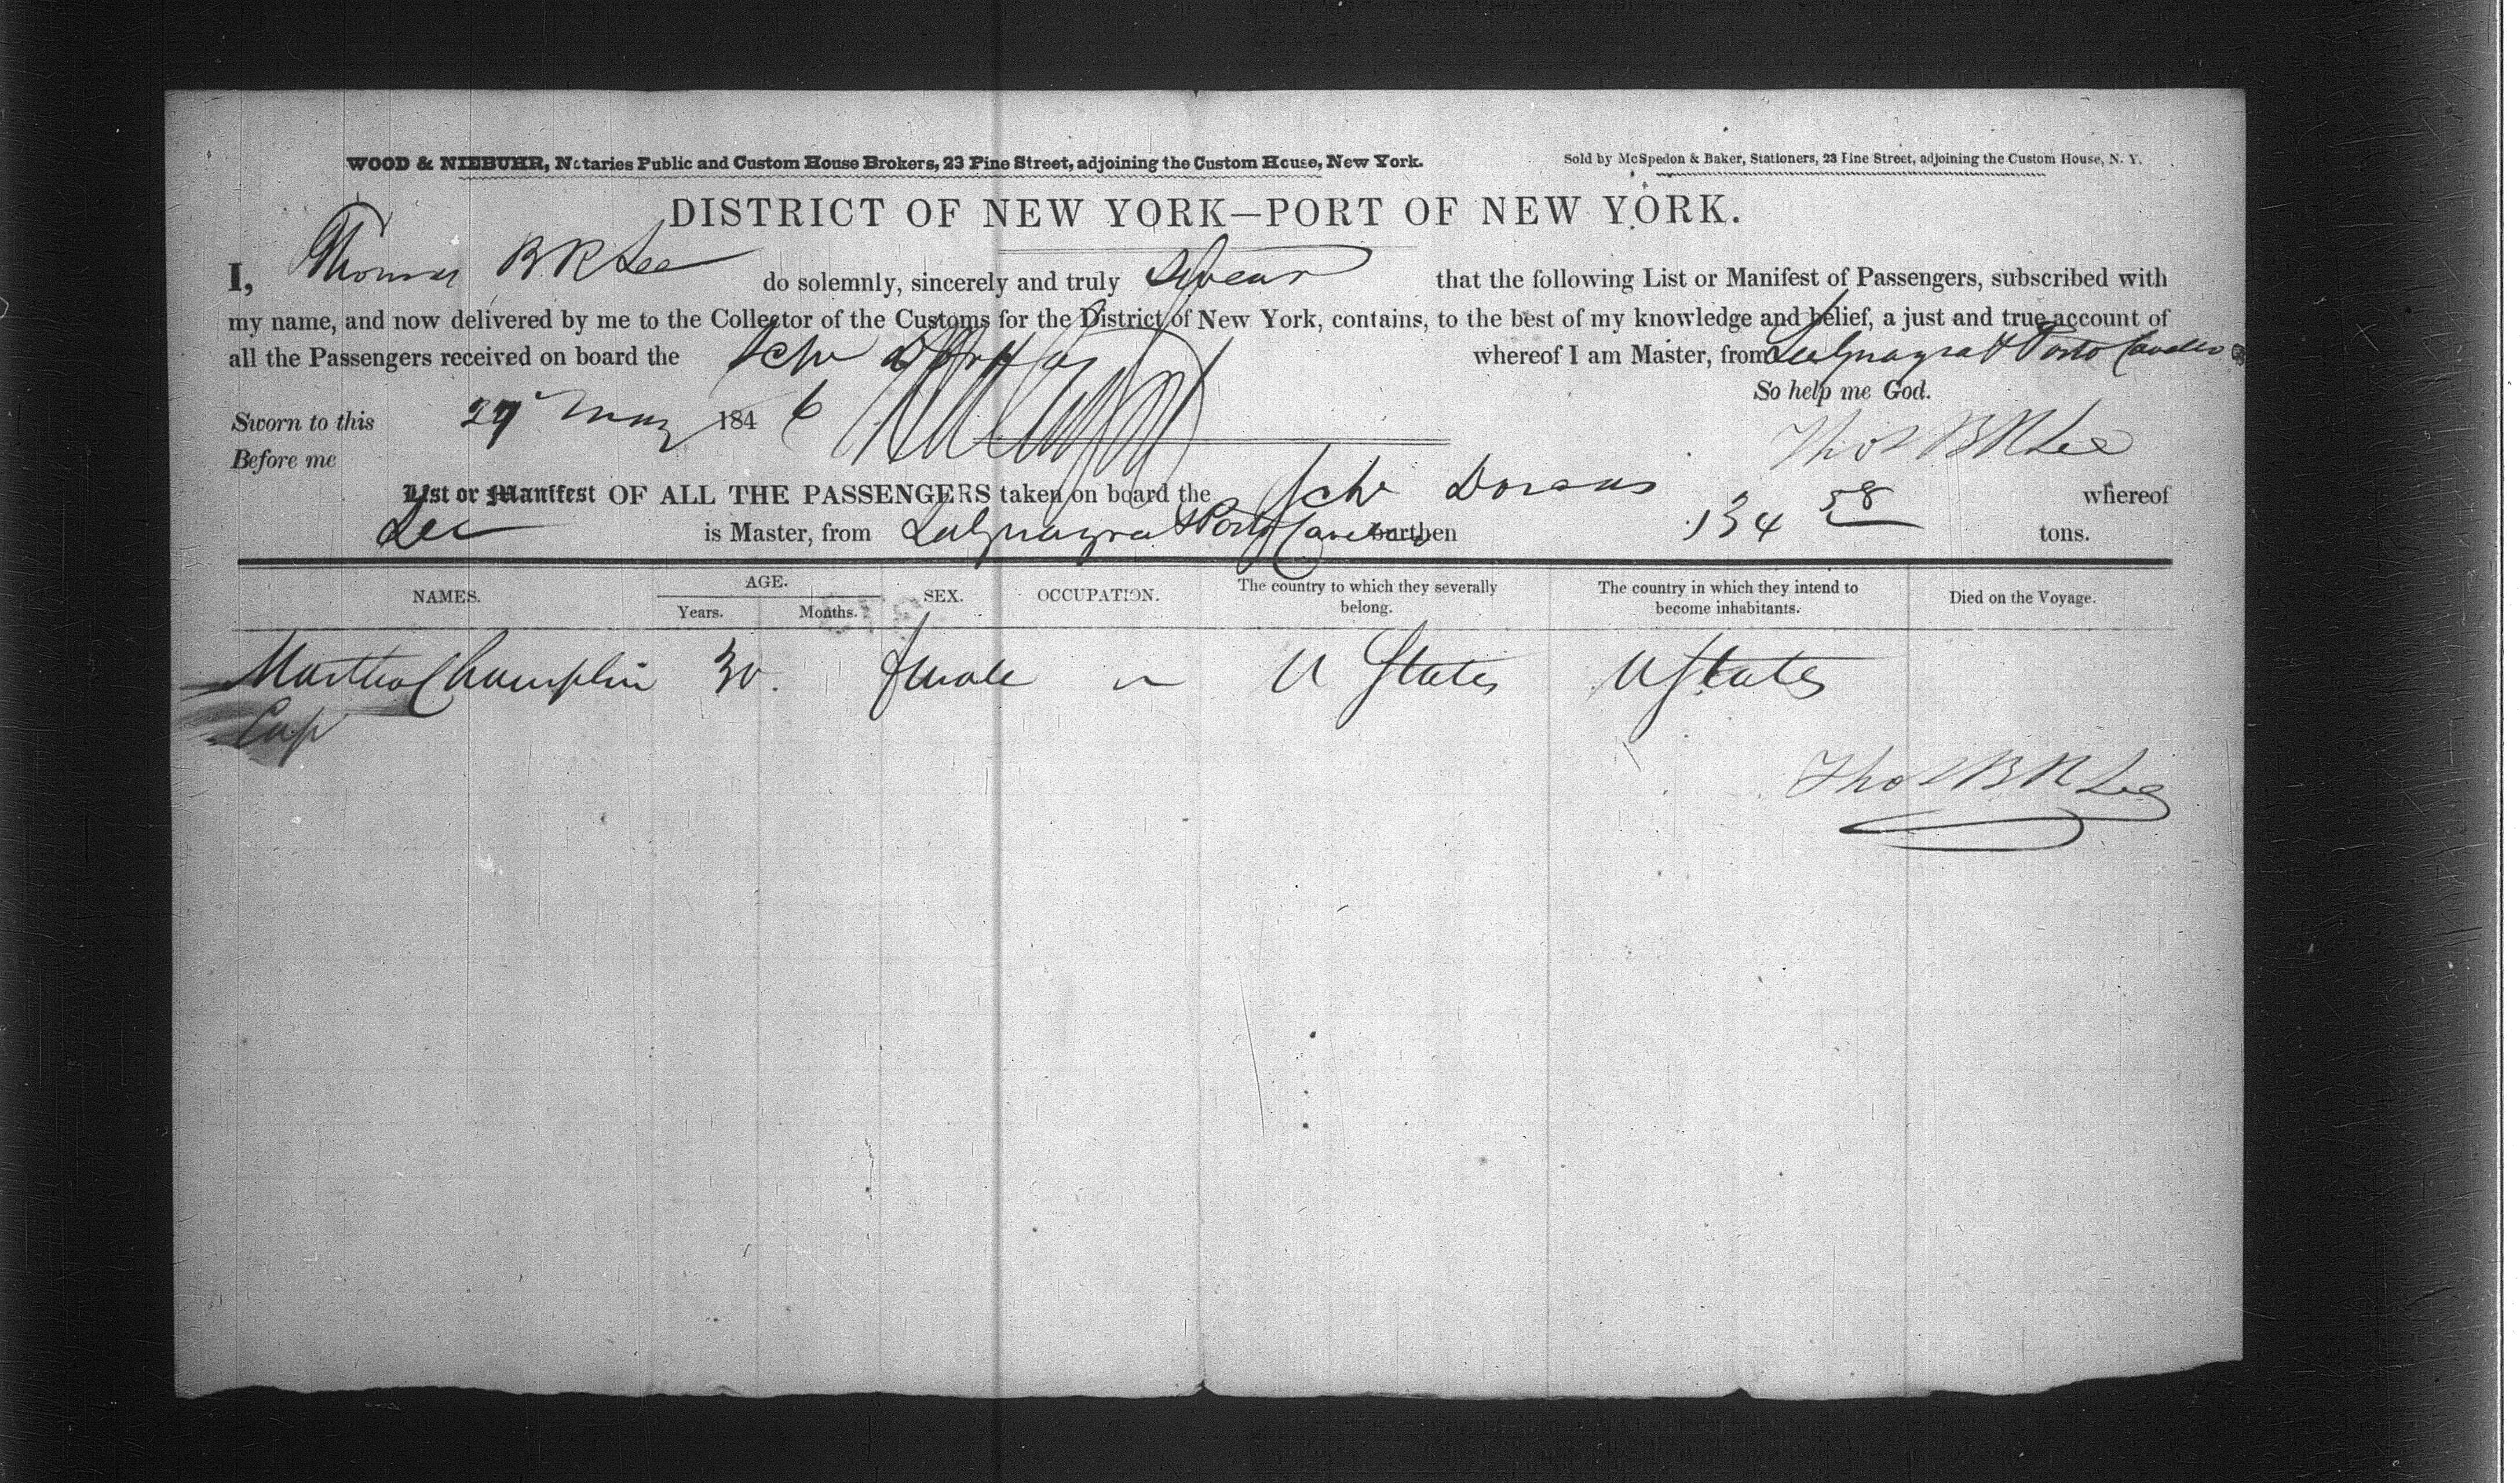 WOOD & NIEBUHR, Notaries Public and Custom House Brokers, 23 Pine Street, adjoining the Custom House, New York.
Sold by McSpedon & Baker, Stationers, 23 Pine Street, adjoining the Custom House, N. Y.
DISTRICT OF NEW YORK—PORT OF NEW YORK.
I, Thomas B R Lee do solemnly, sincerely and truly Swear that the following List or Manifest of Passengers, subscribed with
my name, and now delivered by me to the Collector of the Customs for the District of New York, contains, to the best of my knowledge and belief, a just and true account of
all the Passengers received on board the Schr whereof I am Master, from Laguayra & Porto Cavello
So help me God.
Sworn to this 27 May 1846
Thos B R Lee
Before me
List or Manifest OF ALL THE PASSENGERS taken on board the Schr whereof
Lee is Master, from Laguayra & Porto Cavello burthen 134 58 tons.
NAMES. AGE. Years. Months. SEX. OCCUPATION. The country to which they severally belong. The country in which they intend to become inhabitants. Died on the Voyage.
Martha Champlin 30. female U States U States
Thos B R Lee